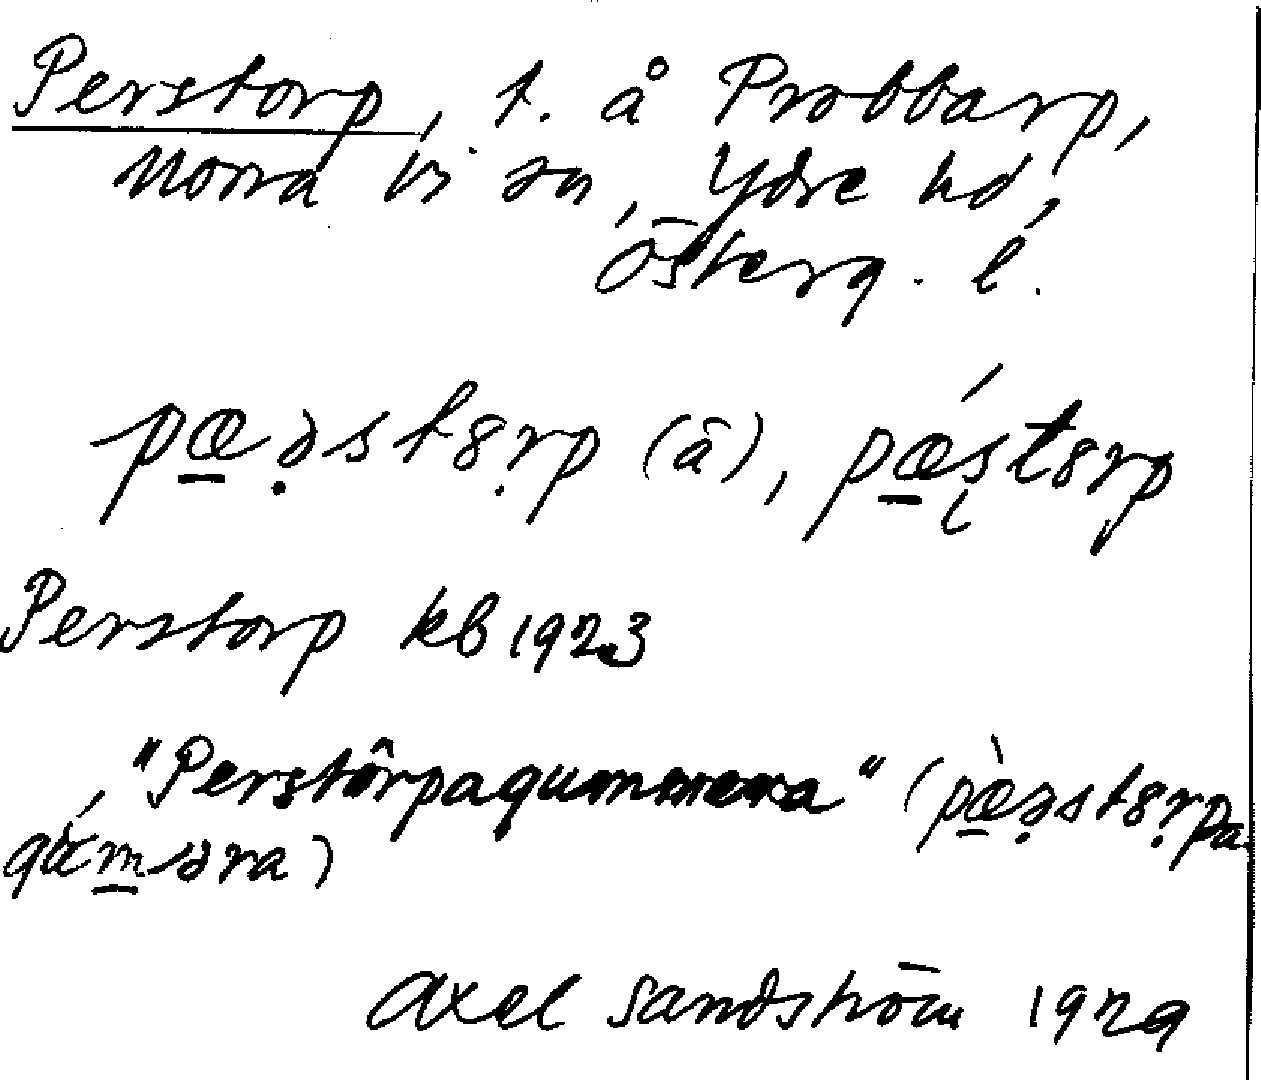 Perstorp, t. å Probbarp,
Norra Vi sn, Ydre hd,
Österg. l.
pæ̱ə̣st8̣rp (å), pǽ̱ştȣrp
Perstorp kb 1923
"Perstôrpagummera" (pæ̱̀ə̣st8̣rpa-
gám̱əra)
Axel Sandström 1929